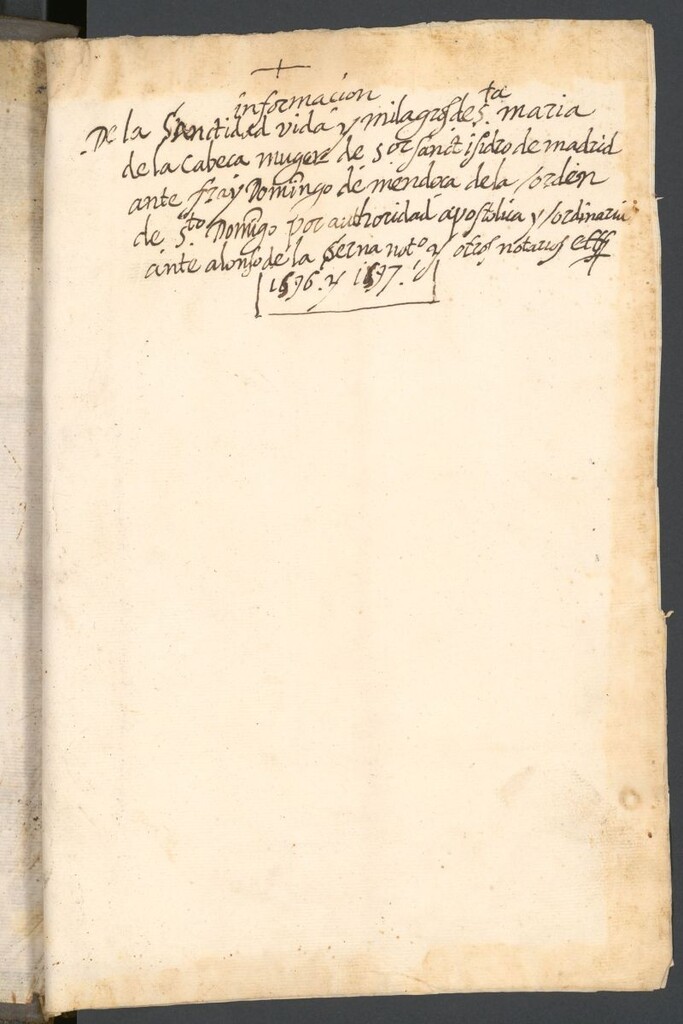 +
informacion
De la Sanctidad vida y milagros de S.ta maria
de la Cabeca muger de S.or sanct isidro de madrid
ante fray Domingo de mendoca de la orden
de S.to Domingo por authoridad apostolica y ordinaria
ante alonso de la Serna not.o y otros notarios
1596. y 1597.